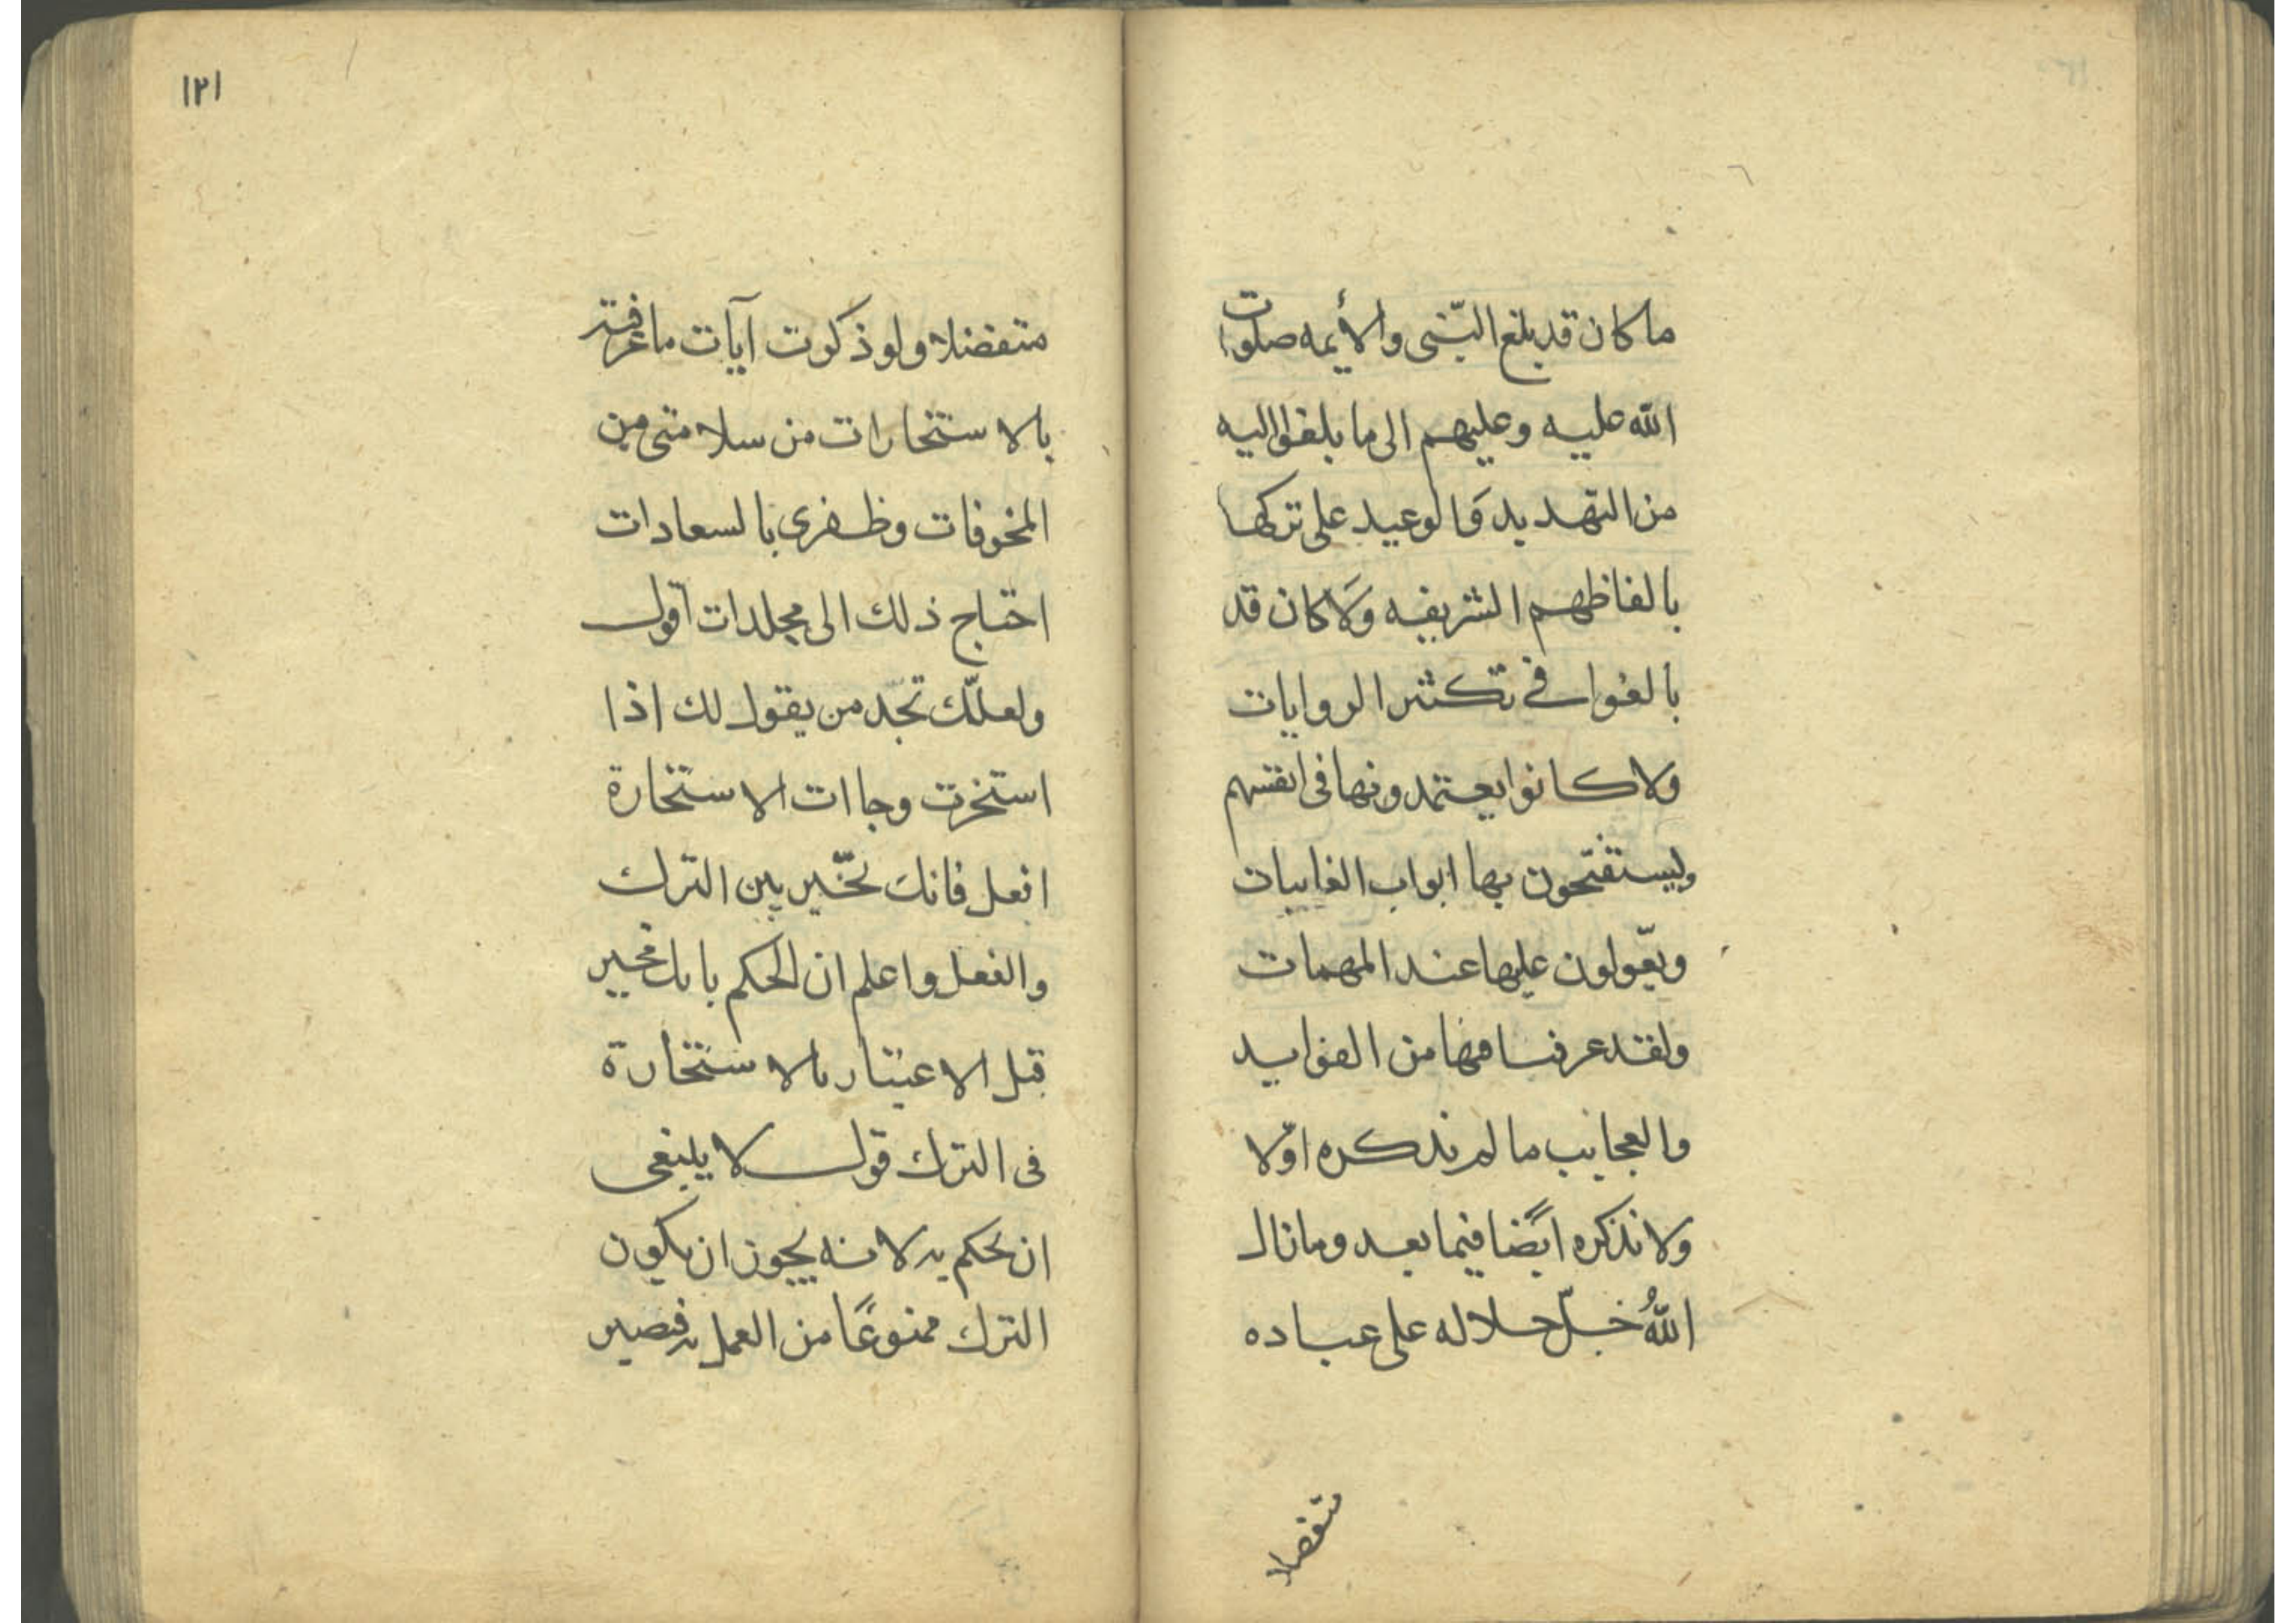 ما كان قد بلغ النّبى والأيمه صلوات
الله عليه وعليهم الى ما بلغوا اليه
من التهديد وَالوعيد على تركها
بالفاظهم الشريفه وَلا كان قد
بالغوا فى تكثير الروايات
ولا كانوا يعتمدونها فى انفسهم
وليستفتحون بها ابواب الغايبات
ويعّولون عليها عند المهمات
ولقد عرفنا فيها من الفوايد
والعجايب ما لم نذكره اوّلا
ولا نذكره ايًضا فيما بعد وما زال
اللهُ جلّ جلاله على عباده
متفضلا
١٢١
متفضلا ولو ذكرت آيات ما عرفته
بالاستخارات من سلامتى من
المخوفات وظفرى بالسعادات
احتاج ذلك الى مجلدات اقول
ولعلّك تجد من يقول لك اذا
استخرت وجاات الاستخارة
افعل فانك تخّير بين الترك
والفعل واعلم ان الحكم بانك مخير
قبل الاعتبار بالاستخارة
فى الترك قول لا ينبغى
ان يحكم به لانه يجوز ان يكون
الترك ممنوعًا من العمل به فتصير